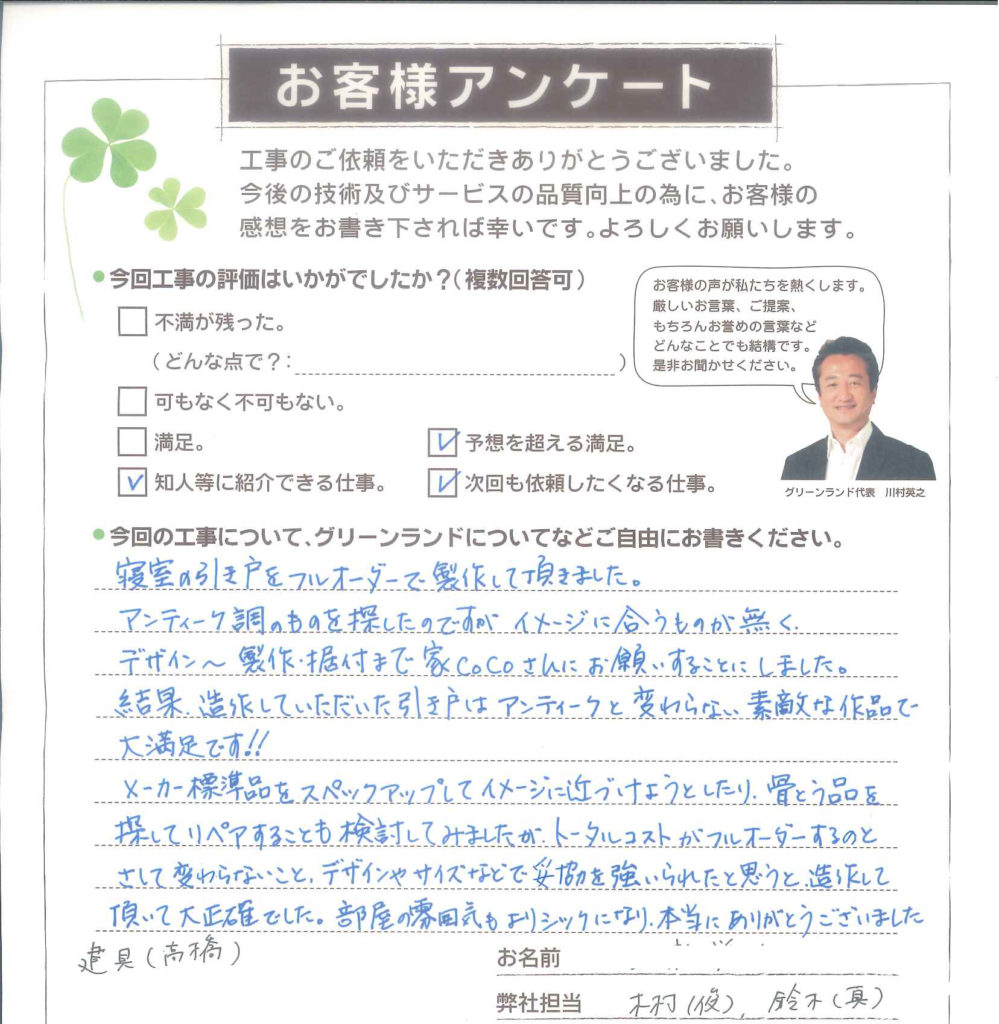 お客様アンケート
工事のご依頼をいただきありがとうございました。
今後の技術及びサービスの品質向上の為に、お客様の
感想をお書き下されば幸いです。よろしくお願いします。
今回工事の評価はいかがでしたか？(複数回答可)
不満が残った。
(どんな点で？:　)
可もなく不可もない。
満足。
予想を超える満足。
知人等に紹介できる仕事。
次回も依頼したくなる仕事。
お客様の声が私たちを熱くします。
厳しいお言葉、ご提案、
もちろんお誉めの言葉など
どんなことでも結構です。
是非お聞かせください。
グリーンランド代表　川村英之
今回の工事について、グリーンランドについてなどご自由にお書きください。
寝室の引き戸をフルオーダーで製作して頂きました。
アンティーク調のものを探したのですが イメージに合うものが無く、
デザイン〜製作・据付まで家CoCoさんにお願いすることにしました。
結果、造作していただいた引き戸はアンティークと変わらない素敵な作品で
大満足です!!
メーカー標準品をスペックアップしてイメージに近づけようとしたり、骨とう品を
探してリペアすることも検討してみましたが、トータルコストがフルオーダーするのと
さして変わらないこと、デザインやサイズなどで妥協を強いられたと思うと、造作して
頂いて大正確でした。部屋の雰囲気もよりシックになり、本当にありがとうございました
建具(高橋)
お名前
弊社担当　木村(俊)、鈴木(真)